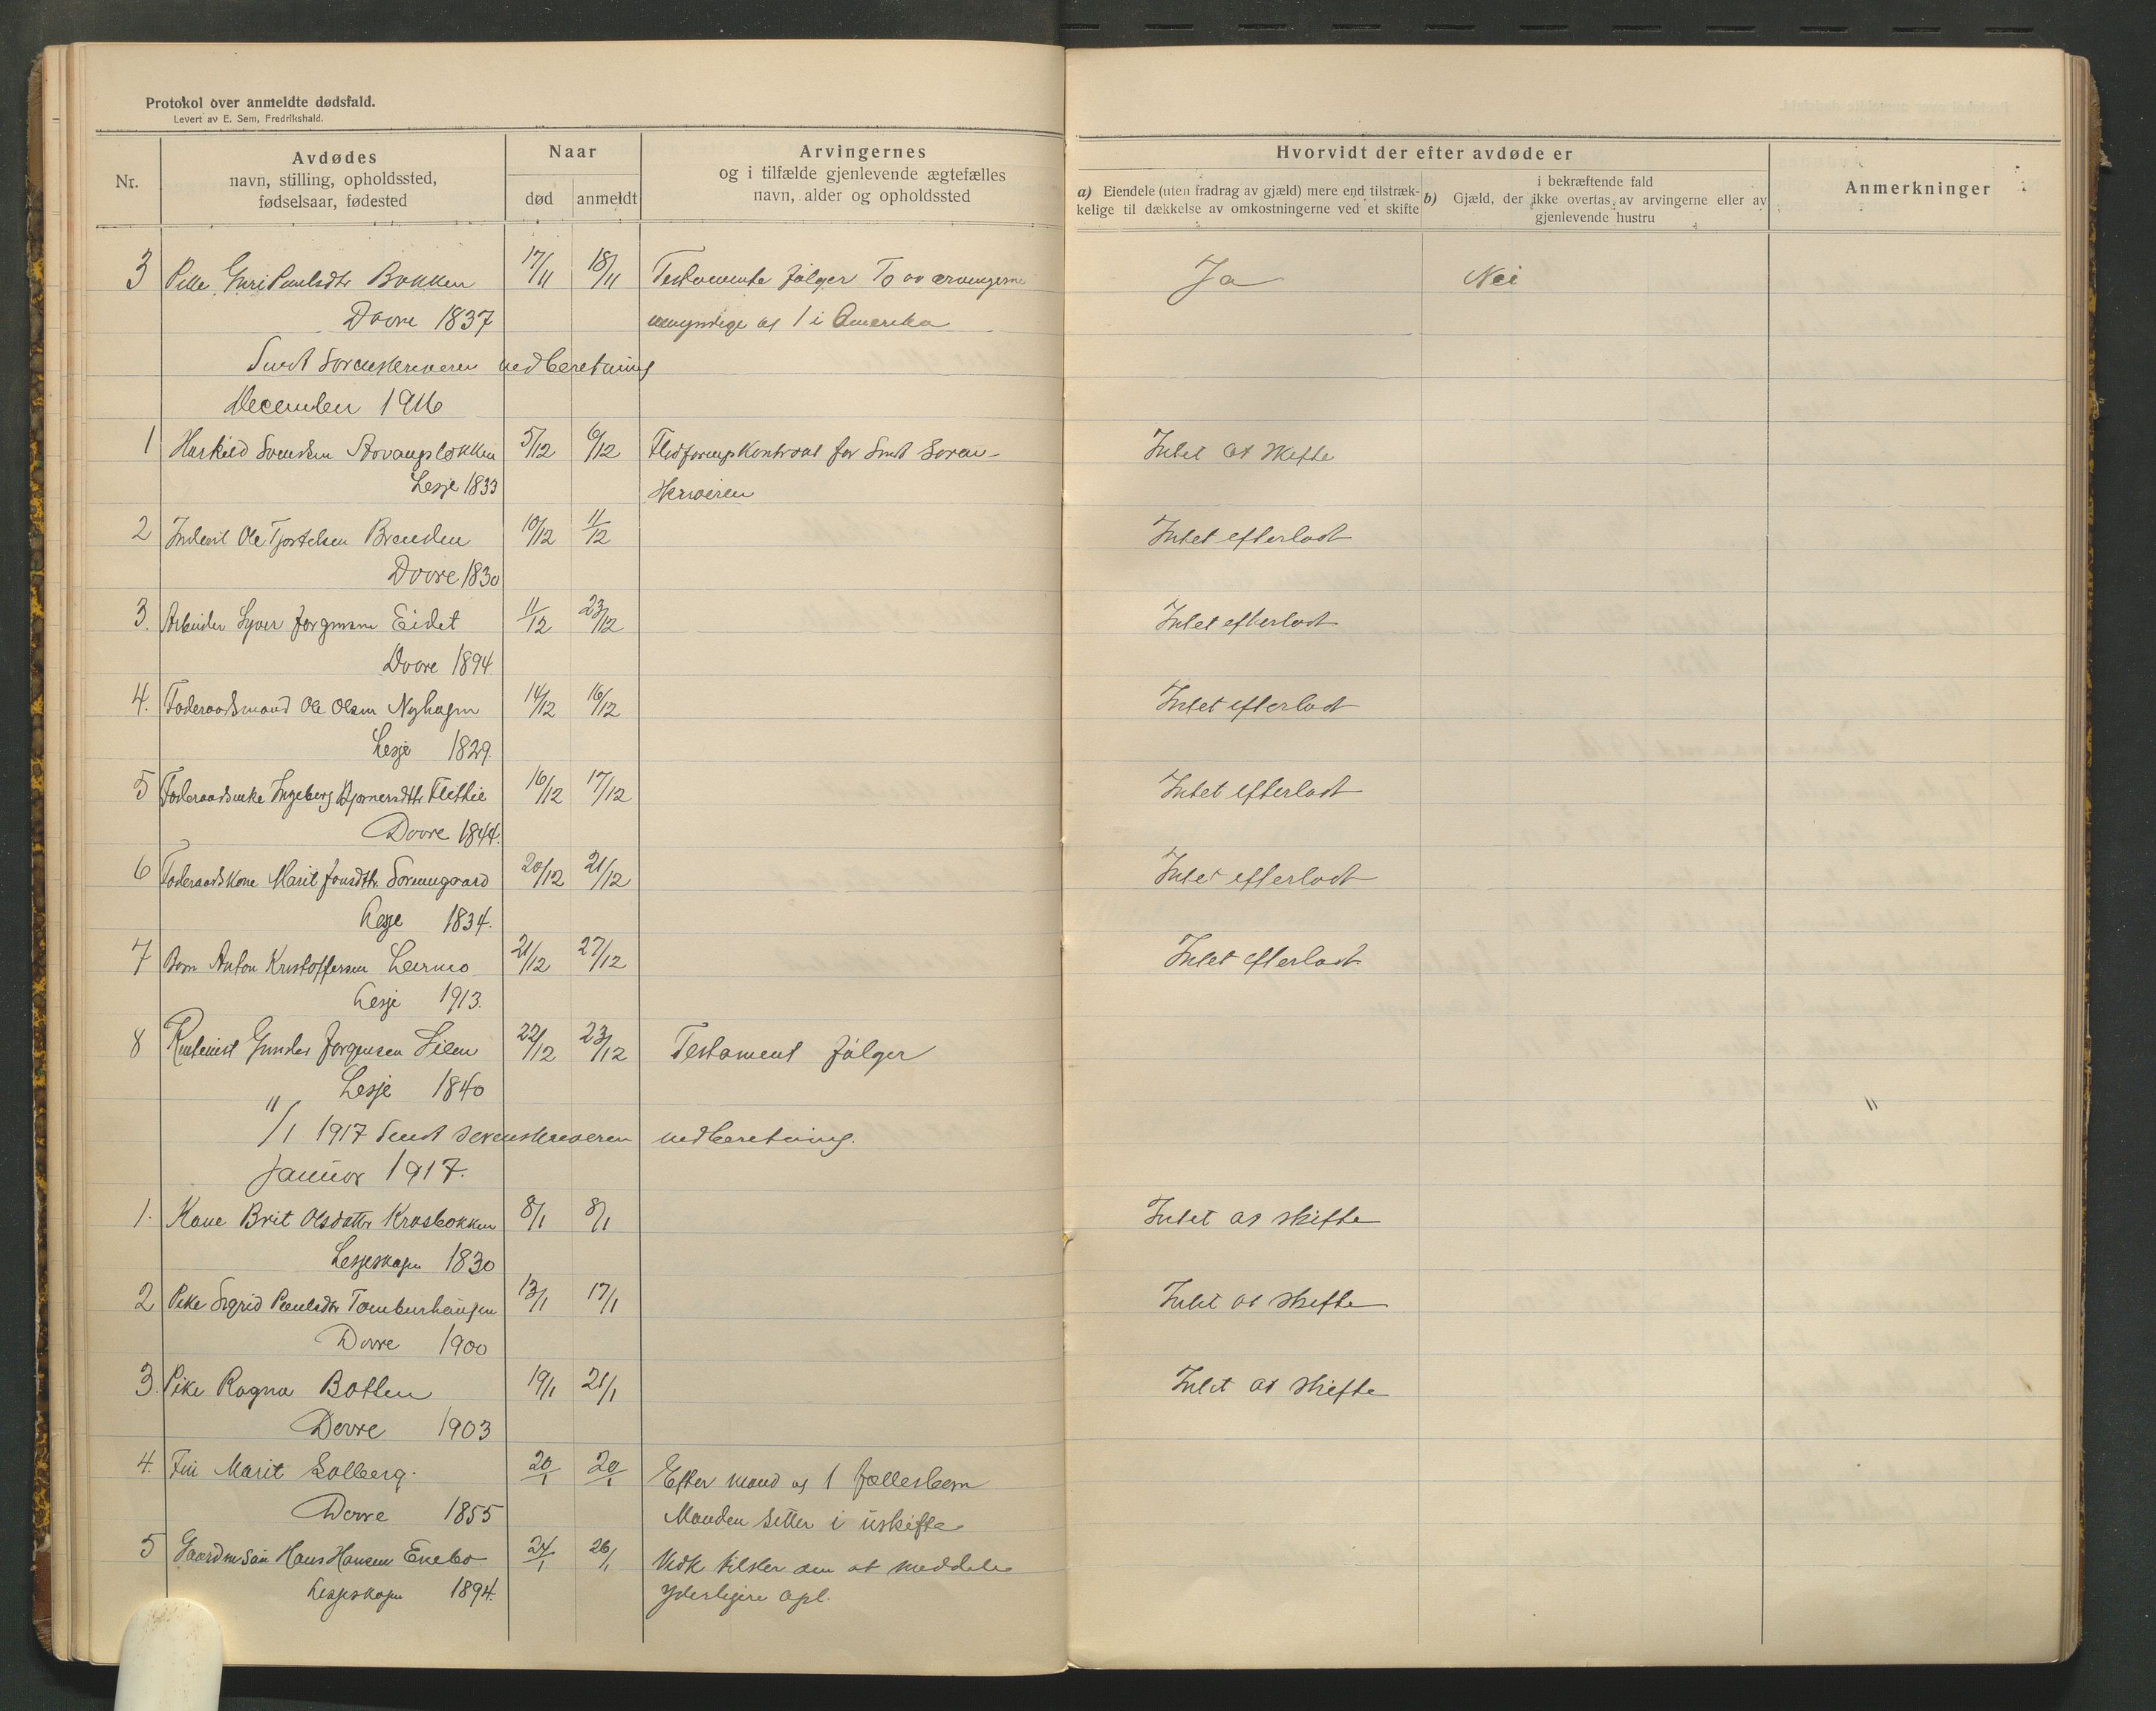 Protokol over anmeldte dødsfald.
Levert av E. Sem, Fredrikshald.
Nr.
Avdødes
navn, stilling, opholdssted,
fødselsaar, fødested
Naar
død
anmeldt
Arvingernes
og i tilfælde gjenlevende ægtefælles
navn, alder og opholdssted
Hvorvidt der efter avdøde er
a) Eiendele (uten fradrag av gjæld) mere end tilstræk-
kelige til dækkelse av omkostningerne ved et skifte
i bekræftende fald
b) Gjæld, der ikke overtas av arvingerne eller av
gjenlevende hustru
Anmerkninger
3 Guri Paulsdtr Bakken 17/11 18/11 Testamente følger To av arvingerne Ja Nei
Dovre 1837 umyndige og 1 i Amerika
Sendt Sorenskriveren indberetning
December 1916
1 Svendsen 5/12 6/12 for Sendt Soren- Intet at skifte
Lesje 1833 skriveren
2 Inderst Ole Brenden 10/12 11/12 Intet efterladt
Dovre 1830
3. Arbeider Syver Jørgensen Eidet 11/12 23/12 Intet efterladt
Dovre 1894
4. Føderaadsmand Ole Olsen Nyhagen 14/12 16/12 Intet efterladt
Lesje 1829.
5 Ingeborg Bjørnersdtr 16/12 17/12 Intet efterladt
Dovre 1844.
6 Føderaadskone Marit Jonsdtr. 20/12 21/12 Intet efterladt
Lesje 1834.
7 Barn Anton Kristoffersen 21/12 27/12 Intet efterladt
Lesje 1913.
8 Jørgensen Lien 22/12 23/12 Testament følger
Lesje 1840
11/1 1917 Sendt sorenskriveren indberetning.
Januar 1917.
1. Kone Brit Olsdatter 8/1 8/1 Intet at skifte
Lesjeskogen 1830
2 Pike Sigrid Paulsdtr 13/1 17/1 Intet at skifte
Dovre 1900
3. Pike Ragna Botten 19/1 21/1 Intet at skifte
Dovre 1903
4. Marit Solberg. 20/1 20/1 Efter mand og 1 fællesbarn
Dovre 1855 Manden sitter i uskifte
5 Hans Hansen Enebo 24/1 26/1 tilsker om at meddele
Lesjeskogen 1894. yderligere opl.